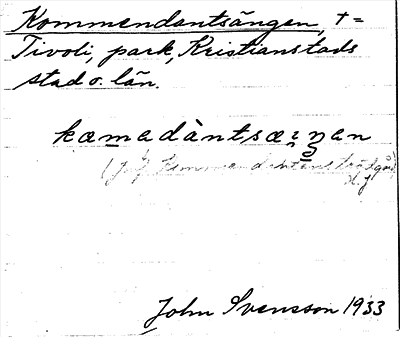 Kommendantsängen, +=
Tivoli, park, Kristianstads
stad o. län.
kæmadàntsæ:ŋen
(jfr Kommendantens trädgård
d. y
John Svensson 1933